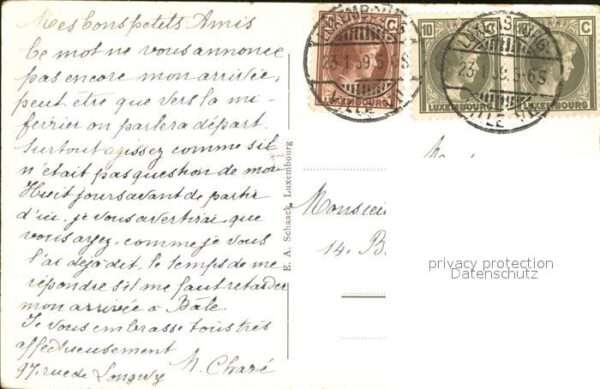 Mes bons petits Amis
Ce mot ne vous annonce
pas encore mon arrivée,
peut être que vers la mi-
fevrier on parlera départ.
Surtout agissez comme s'il
n'était pas question de moi
Huit jours avant de partir
d'ici, je vous avertirai, que
vous ayez, comme je vous
l'ai déjà dit, le temps de me
répondre s'il me faut retarder
mon arrivée à Bâle
Je vous embrasse tous très
affectueusement
97, rue de Longwy
E. A. Schaack, Luxembourg
LUXEMBOURG
23-1 39
VILLE
C
LUXEMBOURG
10
LUXEMBOURG-
23-1 39
VILLE
C
LUXEMBOURG
LUXEMBOURG
Monsieur
14. B
privacy protection
Datenschutz